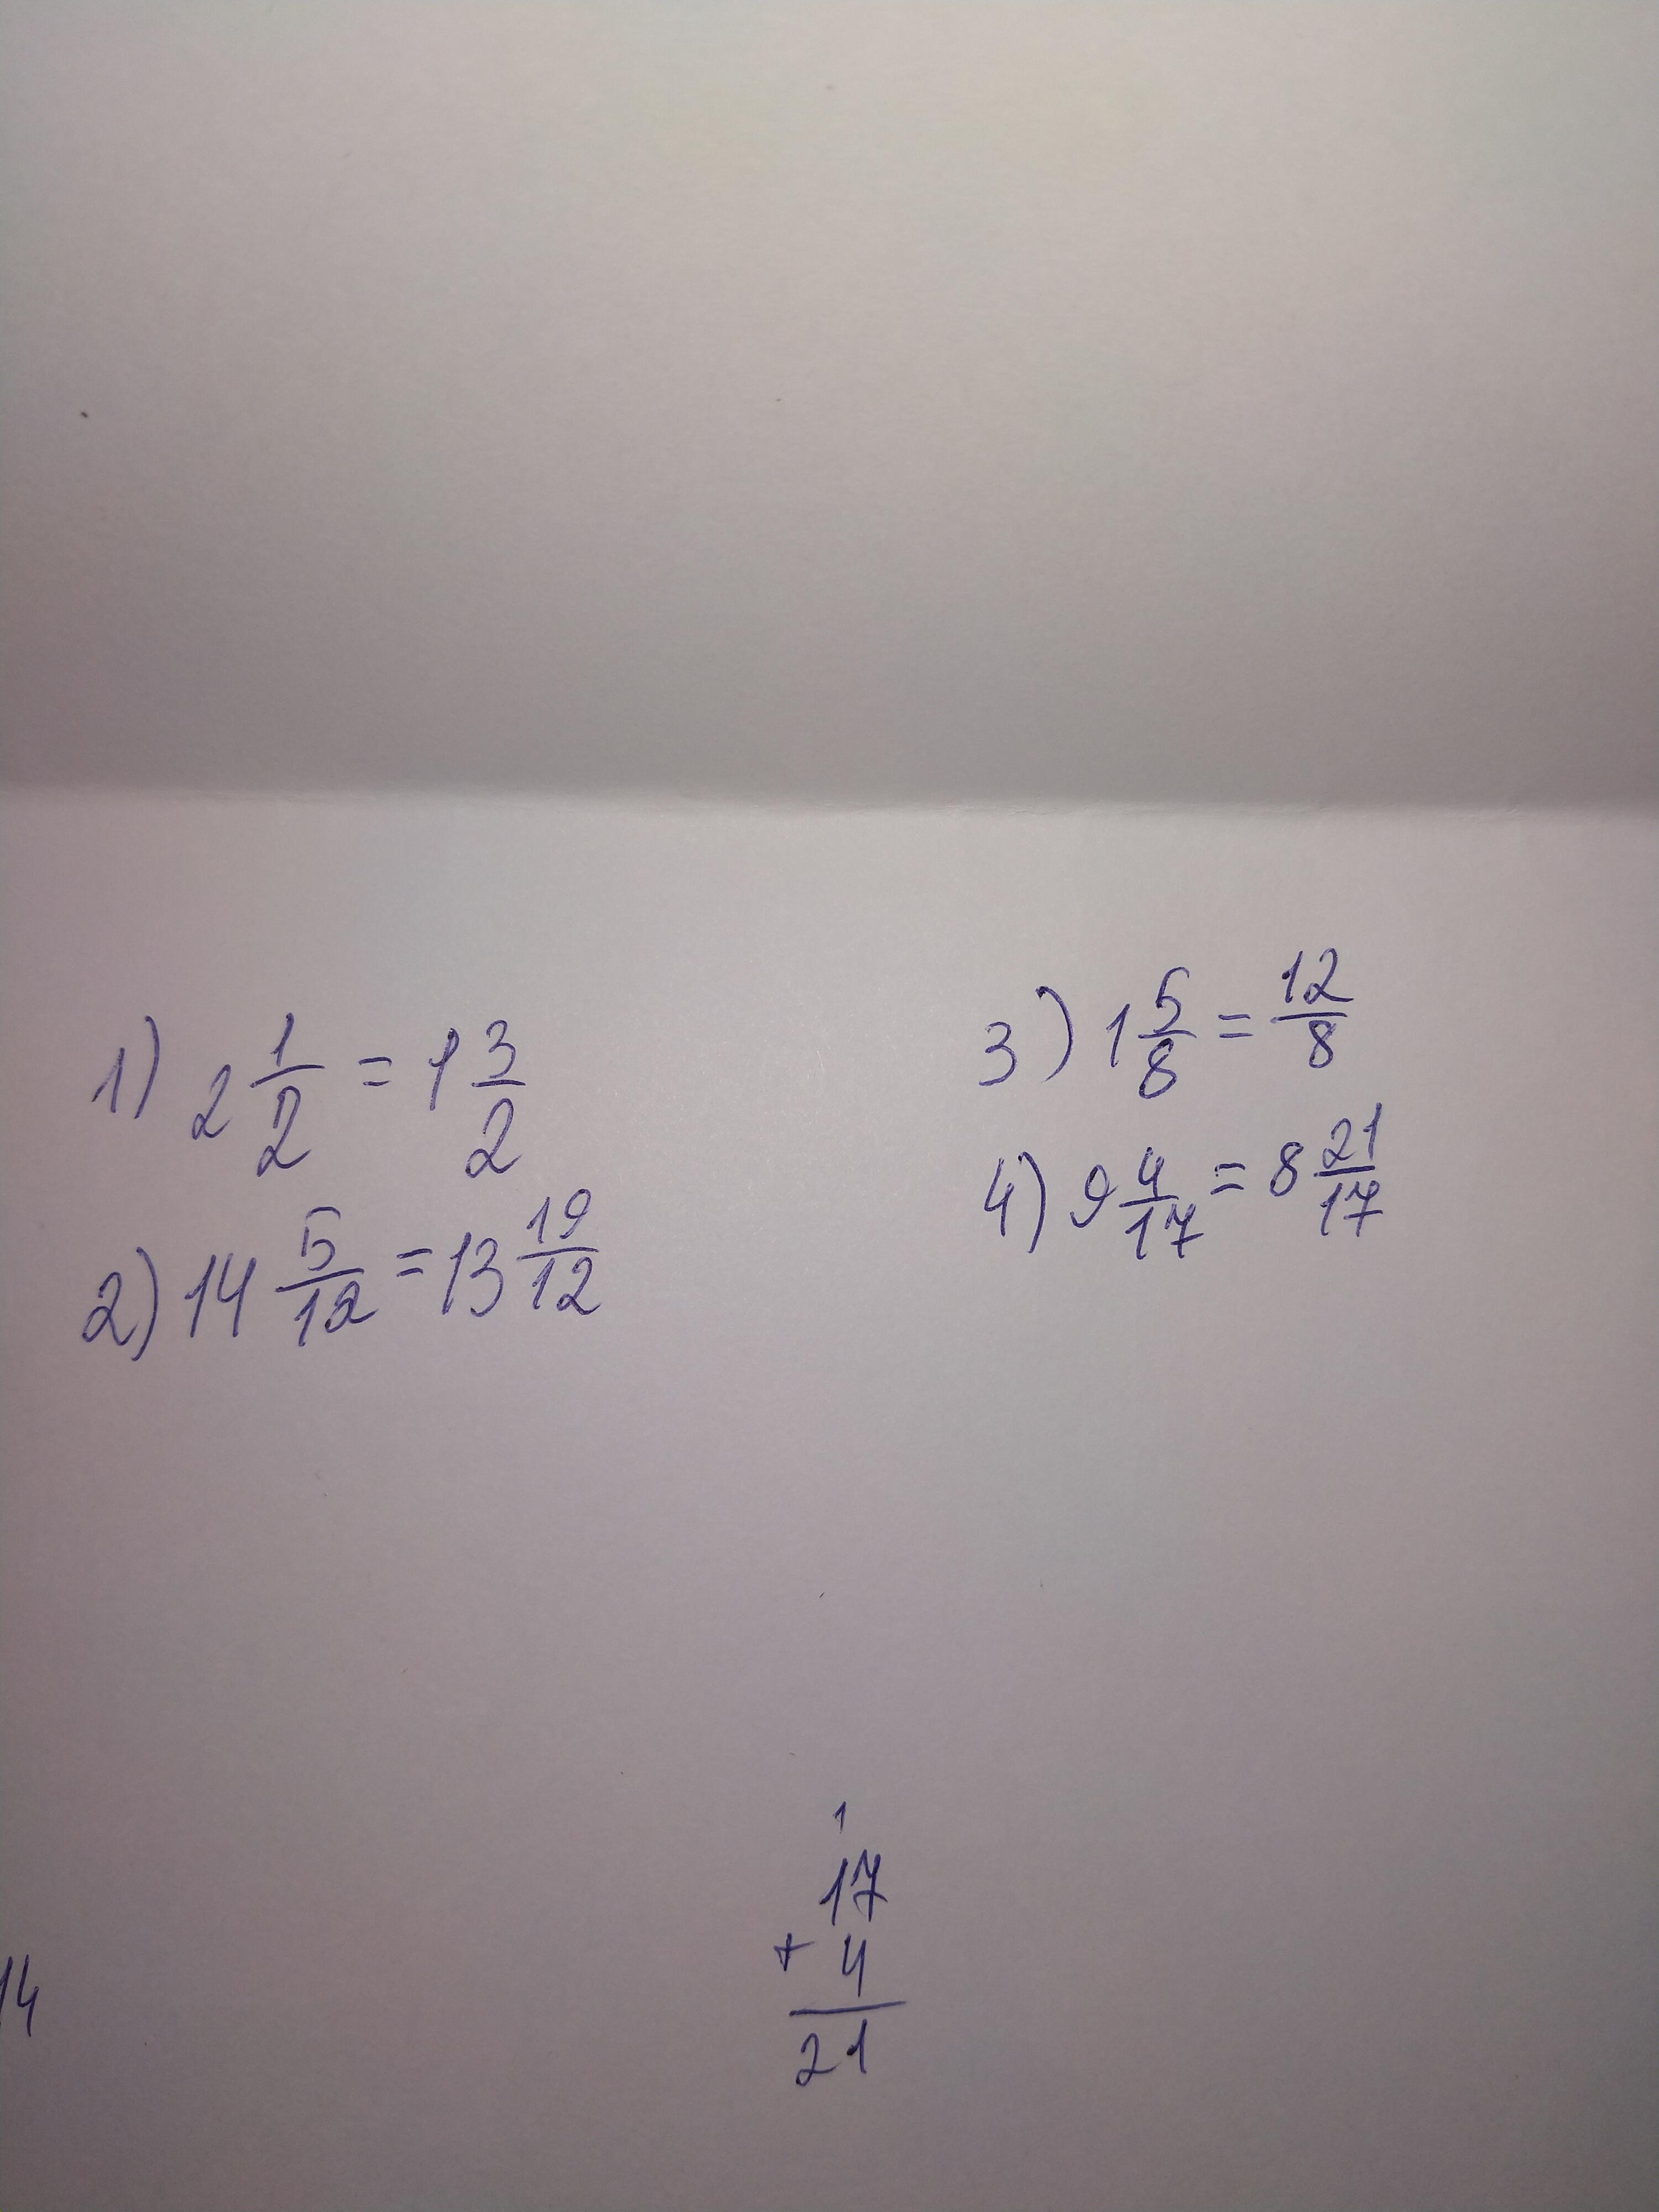 1) 2 1/2 = 1 3/2
2) 14 5/12 = 13 19/12
3) 1 5/8 = 12/8
4) 9 4/17 = 8 21/17
1
17
+ 4
21
14